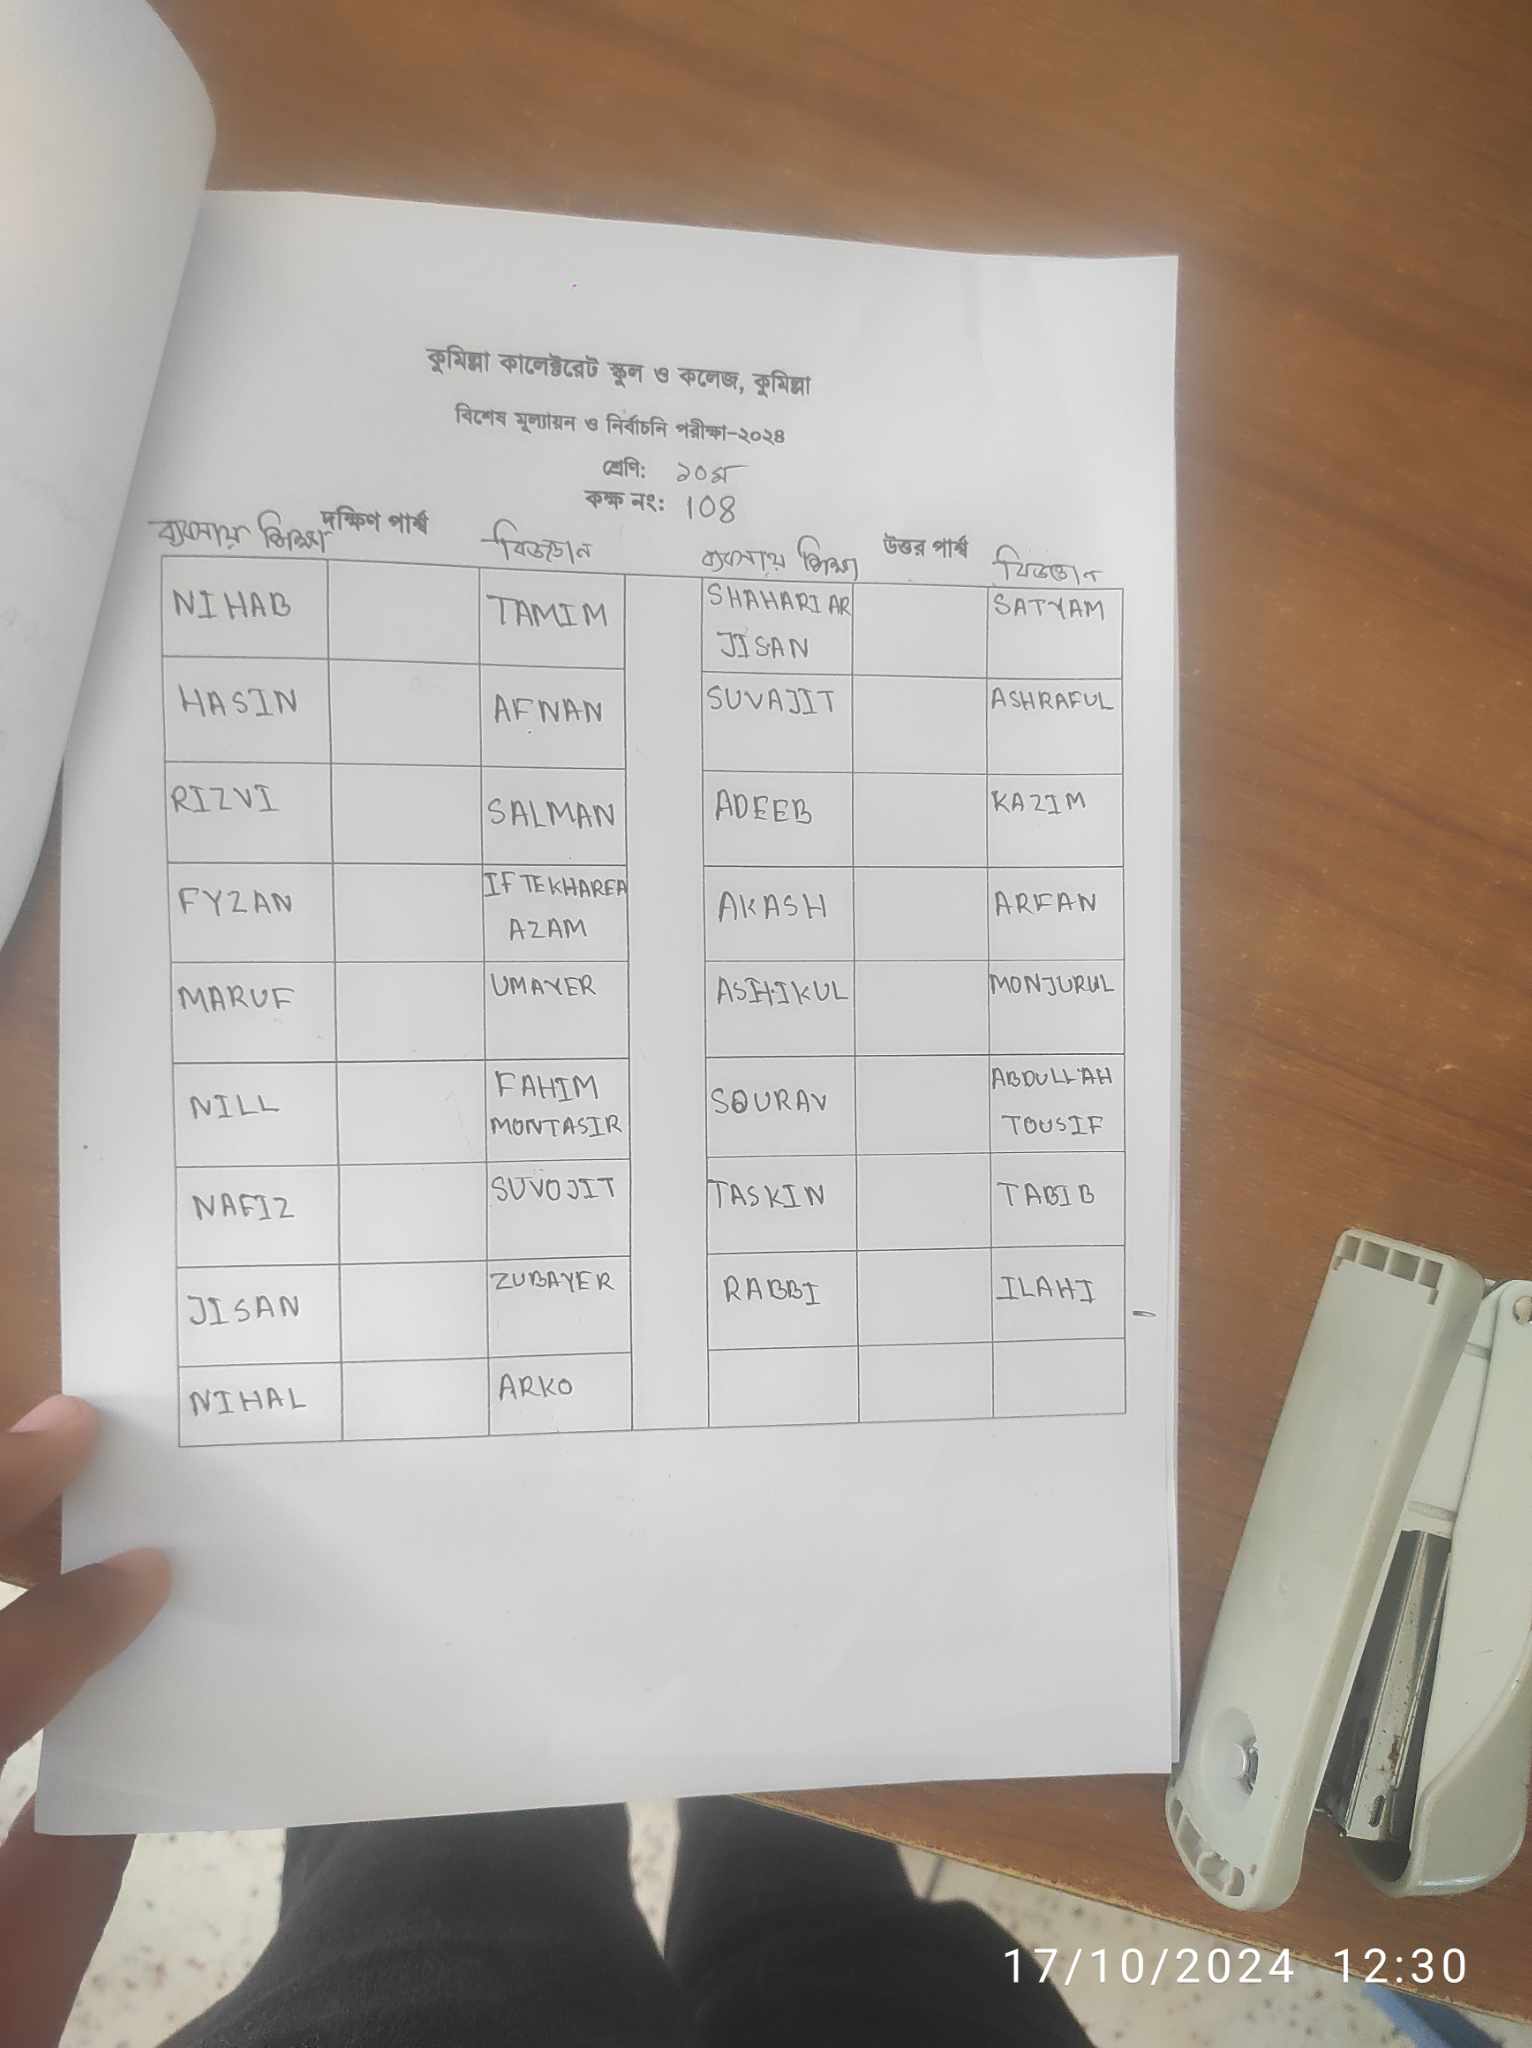 কুমিল্লা কালেক্টরেট স্কুল ও কলেজ, কুমিল্লা
বিশেষ মূল্যায়ন ও নির্বাচনি পরীক্ষা-২০২৪
শ্রেণি: ১০ম
কক্ষ নং: 108
দক্ষিণ পার্শ্ব উত্তর পার্শ্ব
ব্যবসায় শিক্ষা বিজ্ঞান ব্যবসায় শিক্ষা বিজ্ঞান
NIHAB TAMIM SHAHARIAR SATYAM
JISAN
HASIN AFNAN SUVAJIT ASHRAFUL
RIZVI SALMAN ADEEB KAZIM
FYZAN IFTEKHAREA AKASH ARFAN
AZAM
MARUF UMAYER ASHIKUL MONJURUL
NILL FAHIM SOURAV ABDULLAH
MONTASIR TOUSIF
NAFIZ SUVOJIT TASKIN TABIB
JISAN ZUBAYER RABBI ILAHI
NIHAL ARKO
17/10/2024 12:30